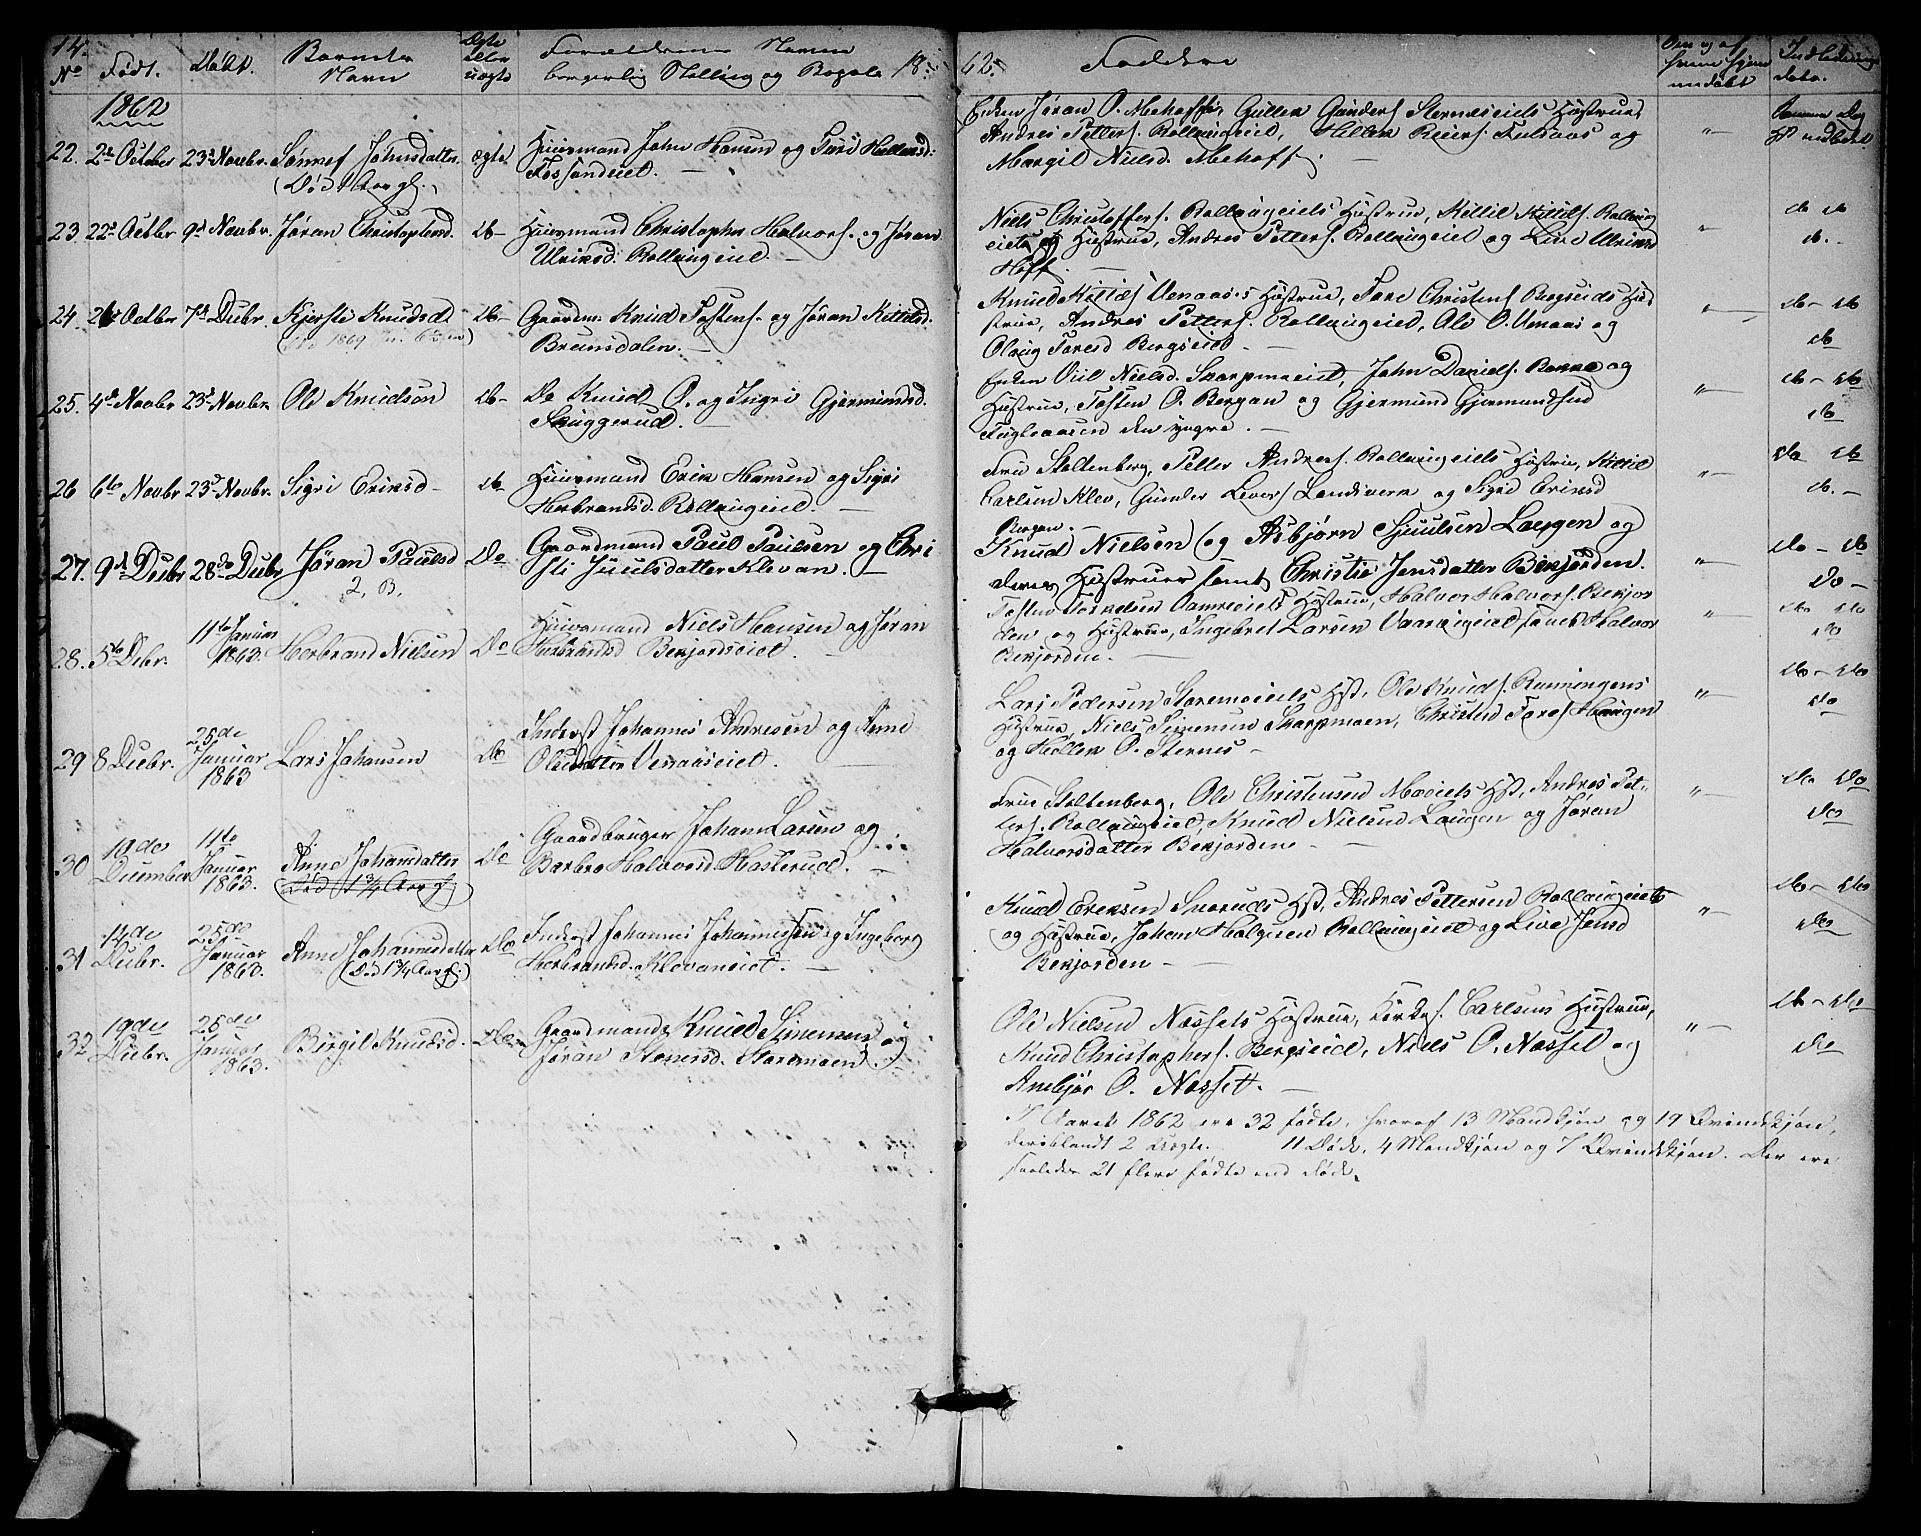 14.
No
Født.
Døbt.
Barnets
Navn
Ægte
eller
uægte
Forældrenes Navne
borgerlig Stilling og Bopæl
18
62.
Faddere
Om og af
hvem hjem
medøbt
Indlednings
dato.
1862
22. 2den October 23de Novbr. Johnsdatter
(Død 1 Aar gl.)
ægte
Huusmand John Hansen og Turi Hellersd:
Fossandeiet.
Enken Jøran O. Mehoff, Gullek Gunders Sterneseiets Hustrue,
Andres Petters. Rollaugeiet, Hellek Reiers. Fulsaas og
Margit Nielsd. Mehoff.
samme Dag
indledet
23. 22de Octbr 9de Novbr. Jøran Christophersd. do
Huusmand Christopher Halvors. og Jøran
Ulriksd. Rollaugeiet.
Niels Christoffers. Rollaugeiets Hustrue, Kittil Kittils. Rollaug
eiets og Hustrue, Andres Petters. Rollaugeiet og Live Ulriksd
Hoff.
do do
do.
24. Octbr 7de Decbr. Kjersti Knudsd do
(død 1869
Gaardm. Knud Tostens. og Jøran Kittilsd.
Brunsdalen.
Knud Kittils Venaases Hustrue, Tore Christens Bergseids Hus
strue, Andres Petters. Rollaugeiet, Ole O. Venaas og
Olaug Toresd Bergseid.
do do
do
25. 4de Novbr 23de Novbr. Ole Knudsen do
Do Knud O. og Ingri Gjermundsd.
Skuggerud.
Enken Nielsd. Skarpmoeiet, John Daniels. Bakke og
Hustrue, Tosten O. Bergan og Gjermund Gjermundsen
Fugleaasen den yngre.
do do
do
26 6te Novbr 23de Novbr. Sigri Eriksd do
Huusmand Erik Hansen og Sigri
Herbrandsd. Rollaugeiet.
Fru Stoltenberg, Petter Anders. Rollaugeiets Hustrue, Kittil
Carlsen Klev, Gunder Levors Landsverk og Sigrid Eriksd
Bergan.
do do
do.
27. 9de Decbr 28de Decbr Jøran Paulsd Do
2. B.
Gaardmand Paul Paulsen og Chri
sti Juulsdatter Klevan.
Knud Nielsen og Asbjørn Sjuulsen Laugen og
deres Hustruer samt Christie Jensdatter Bekjorden.
do do
do
28. 5te Debr. 11te Januar
1863. Herbrand Nielsen Do
Huusmand Niels Hansen og Jøran
Herbrandsd Bekjordseiet.
Tosten Torkelsen Hustrue, Halvor Halvors. Bekjor
den og Hustrue, Ingebret Larsen Halvor
Bekjorden.
do do
do
29 8 Decbr. 25de
Januar
1863 Lars Johansen Do
Inderst Johannes Andresen og Anne
Olsdatter Venaaseiet.
Lars Pedersen Staremoeiets Hst, Ole Knuds. Ranningens
Hustrue, Niels Simensen Skarpmoen, Christen Tores Haugen
og Hellek O. Sternes
do do
do
30 10de
December 11te
Januar
1863. Anne Johansdatter
(Død 1¾ Aar gl) Do
Gaardbruger Johan Larsen og
Barbro Halvorsd Hasterud.
Frue Stoltenberg, Ole Christensen Moeiets Hst, Andres Pet-
ters. Rollaugeiet, Knud Nielsen Laugen og Jøran
Halvorsdatter Bekjordene
do do
do
31 14de
Decbr. 25de
Januar
1863. Anne Johannesdatter
(Død 1¾ Aar gl.) Do
Inderst Johannes Johannessen og Ingeborg
Herbrandsd. Klevaneiet.
Knud Eriksen Snoruds Hst, Andres Pettersen Rollaugeiets
og Hustrue, Johan Halgrisen Rollaugeiet og Live Jensd
Bekjorden
do do
do
32 19de
Decbr. 25de
Januar
1863. Birgit Knudsd. Do
Gaardmand Knud Simensen og
Jøran Steners. Staremoen.
Ole Nielsen Næssets Hustrue, Kirkes. Carlsens Hustrue,
Knud Christophers. Bergseid, Niels O. Næsset og
Anebjør O. Næsset.
do do
do
I Aaret 1862 ere 32 fødte, hvoraf 13 Mandkjøn og 19 Qvindekjøn,
deriblandt 2 Uægte. 11 Døde, 4 Mandkjøn og 7 Qvindekjøn. Der ere
saaledes 21 flere fødte end døde.